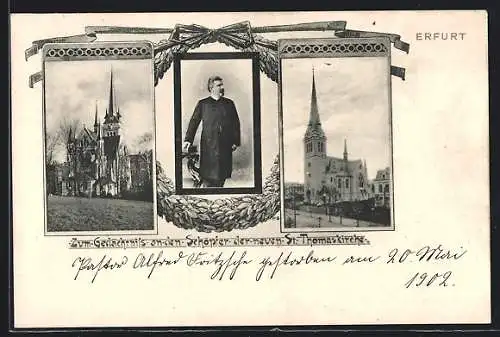 ERFURT
Zum Gedächtnis an den Schöpfer der neuen St. Thomaskirche.
Pastor Alfred Fritzsche gestorben am 20 Mai
1902.